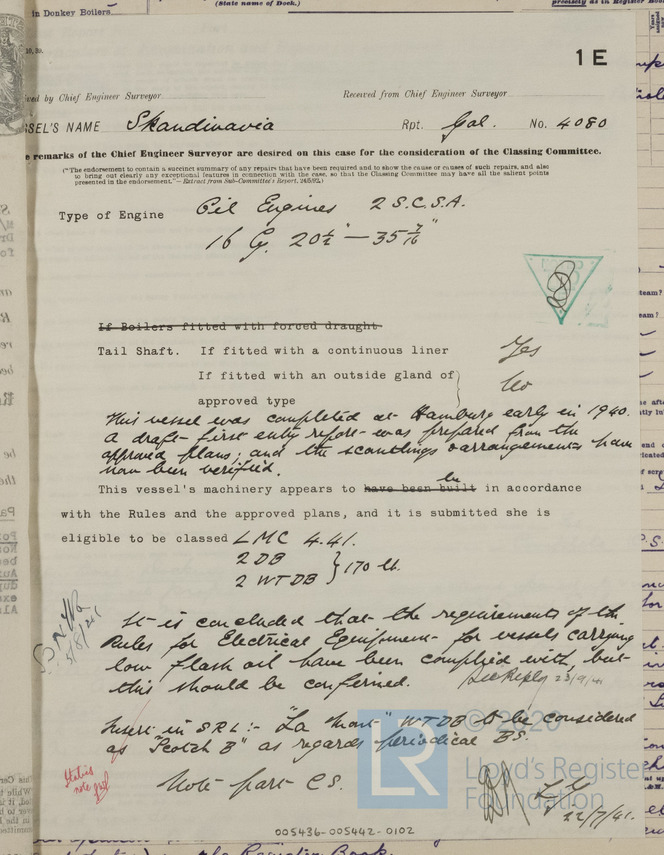 in Donkey Boilers.
(State name of Dock.)
precisely as in Register Book
10, 39.
1 E
ived by Chief Engineer Surveyor
Received from Chief Engineer Surveyor
SSEL'S NAME Skandinavia Rpt. Gal. No. 4080
e remarks of the Chief Engineer Surveyor are desired on this case for the consideration of the Classing Committee.
("The endorsement to contain a succinct summary of any repairs that have been required and to show the cause or causes of such repairs, and also
to bring out clearly any exceptional features in connection with the case, so that the Classing Committee may have all the salient points
presented in the endorsement."—Extract from Sub-Committee's Report, 24/5/92.)
Type of Engine Oil Engines 2 S.C.S.A.
16 Cy. 20½" — 35 7/16"
If Boilers fitted with forced draught
Tail Shaft. If fitted with a continuous liner Yes
If fitted with an outside gland of
approved type No
This vessel was completed at Hamburg early in 1940.
A draft first entry report was prepared from the
approved plans; and the scantlings & arrangements have
now been verified.
This vessel's machinery appears to have been built be in accordance
with the Rules and the approved plans, and it is submitted she is
eligible to be classed LMC 4.41.
2 DB
2 WTDB } 170 lb.
It is concluded that the requirements of the
Rules for Electrical Equipment for vessels carrying
low flash oil have been complied with, but
this should be confirmed. See Reply 23/9/41
Insert in S.R.L:- "La Mont" WTDB to be considered
as "Scotch B" as regards periodical BS.
Note part CS.
22/7/41.
© 2020
Lloyd's Register
Foundation
LR
005436-005442-0102